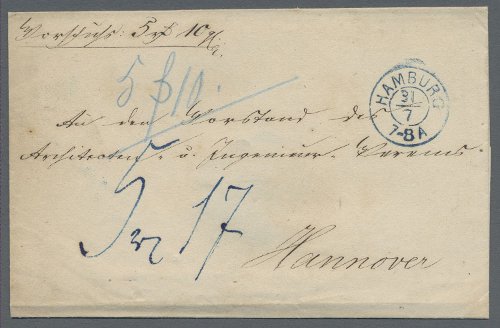 Vorschuss: 5 10
5 10.
HAMBURG
31
7
7-8A
An den Vorstand des
Architecten- u. Ingenieur-Vereins
17
Hannover